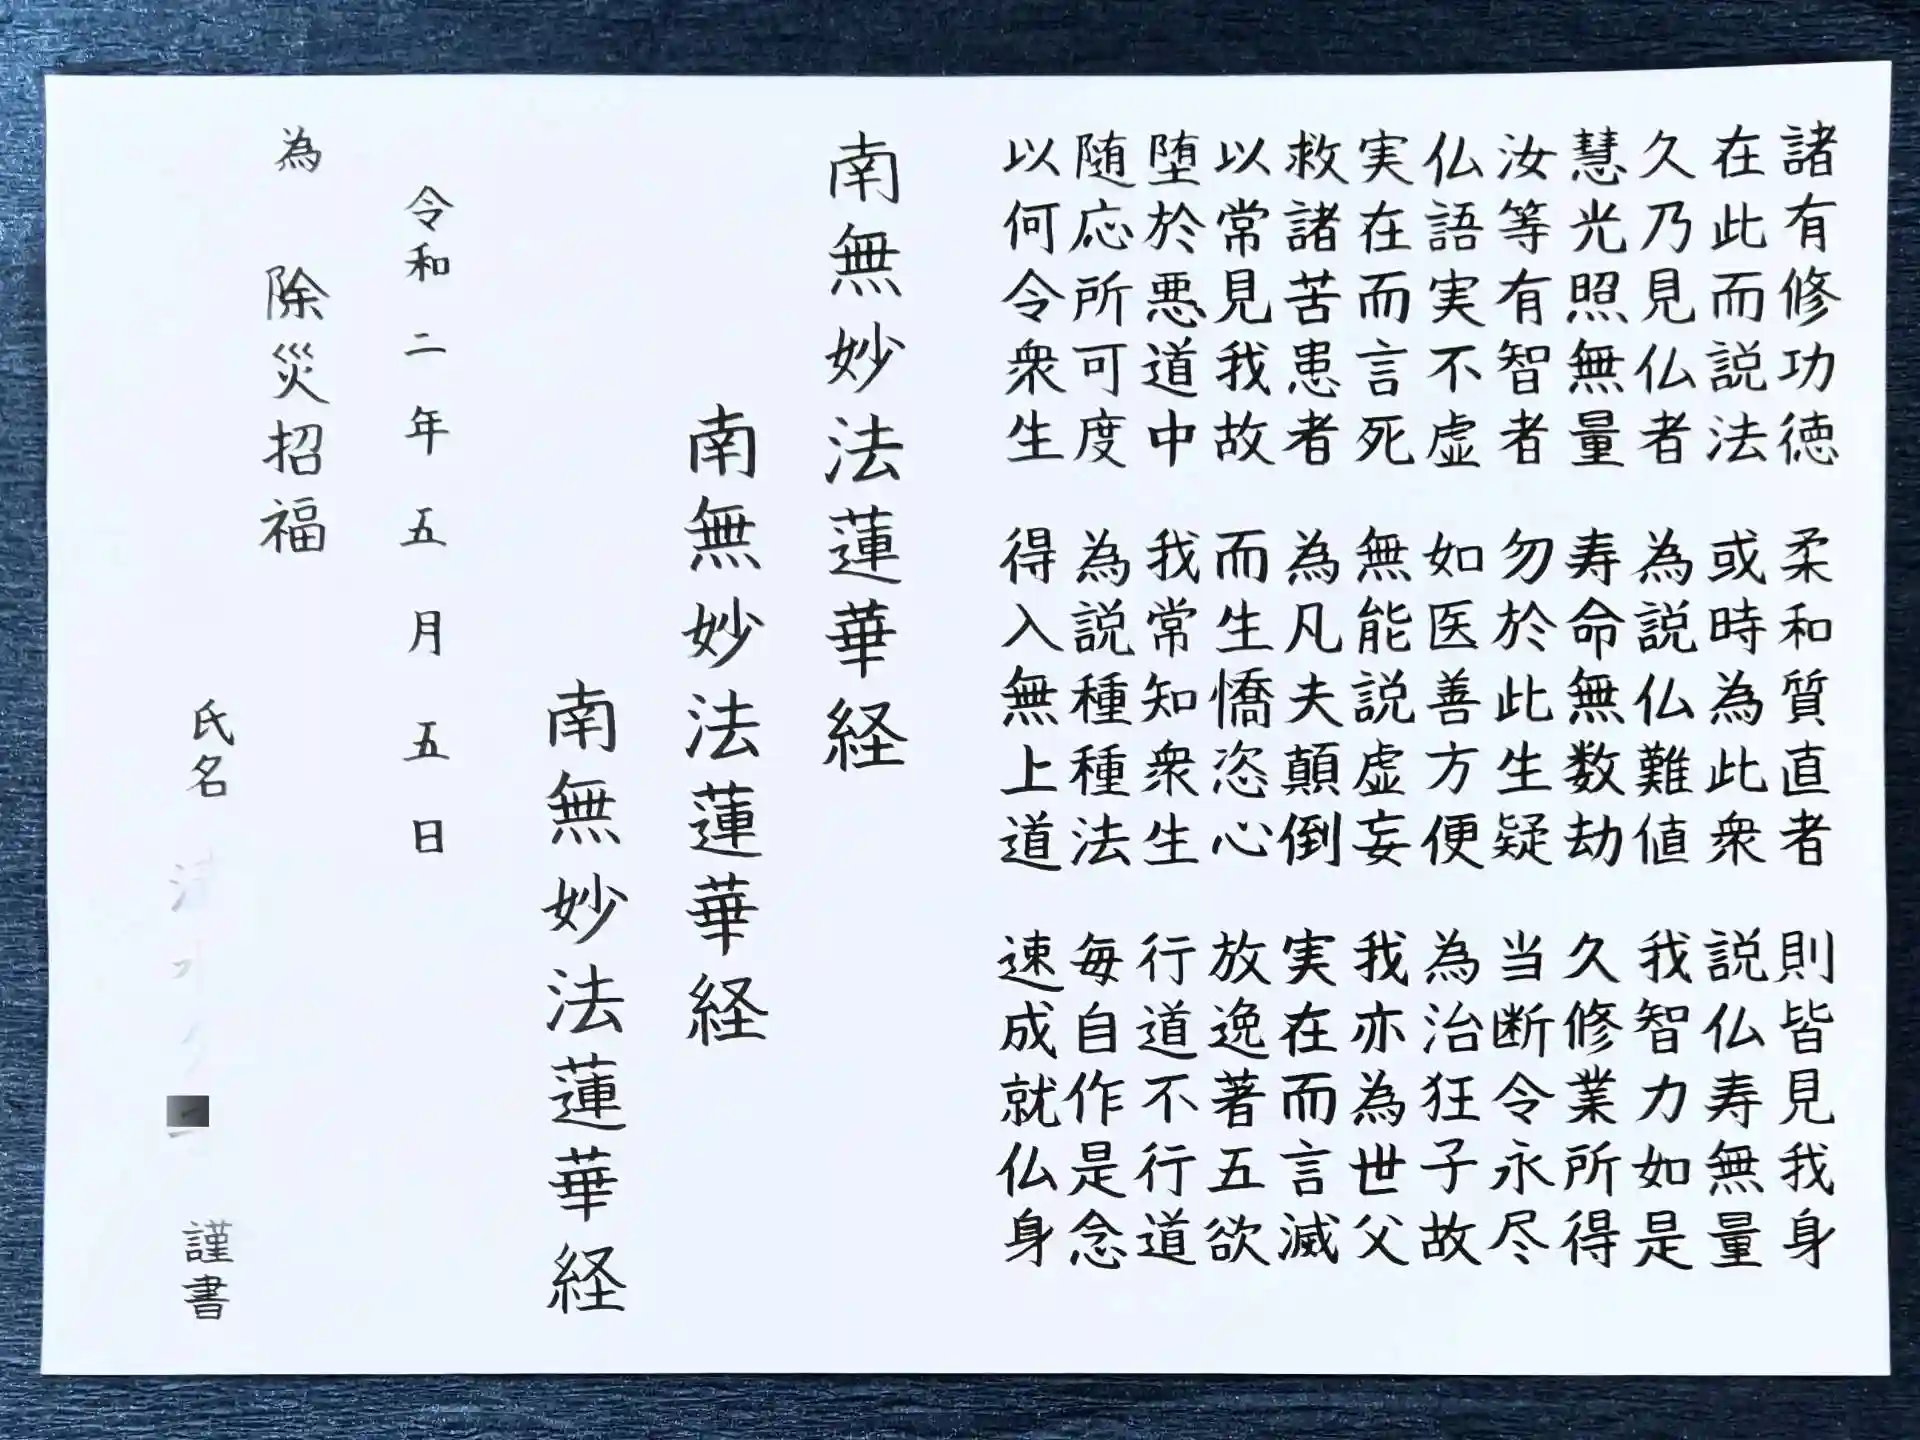 諸有修功徳　柔和質直者　則皆見我身
在此而説法　或時為此衆　説仏寿無量
久乃見仏者　為説仏難値　我智力如是
慧光照無量　寿命無数劫　久修業所得
汝等有智者　勿於此生疑　当断令永尽
仏語実不虚　如医善方便　為治狂子故
実在而言死　無能説虚妄　我亦為世父
救諸苦患者　為凡夫顛倒　実在而言滅
以常見我故　而生憍恣心　放逸著五欲
堕於悪道中　我常知衆生　行道不行道
随応所可度　為説種種法　毎自作是念
以何令衆生　得入無上道　速成就仏身
南無妙法蓮華経
南無妙法蓮華経
南無妙法蓮華経
令和二年五月五日
為　除災招福
氏名　謹書